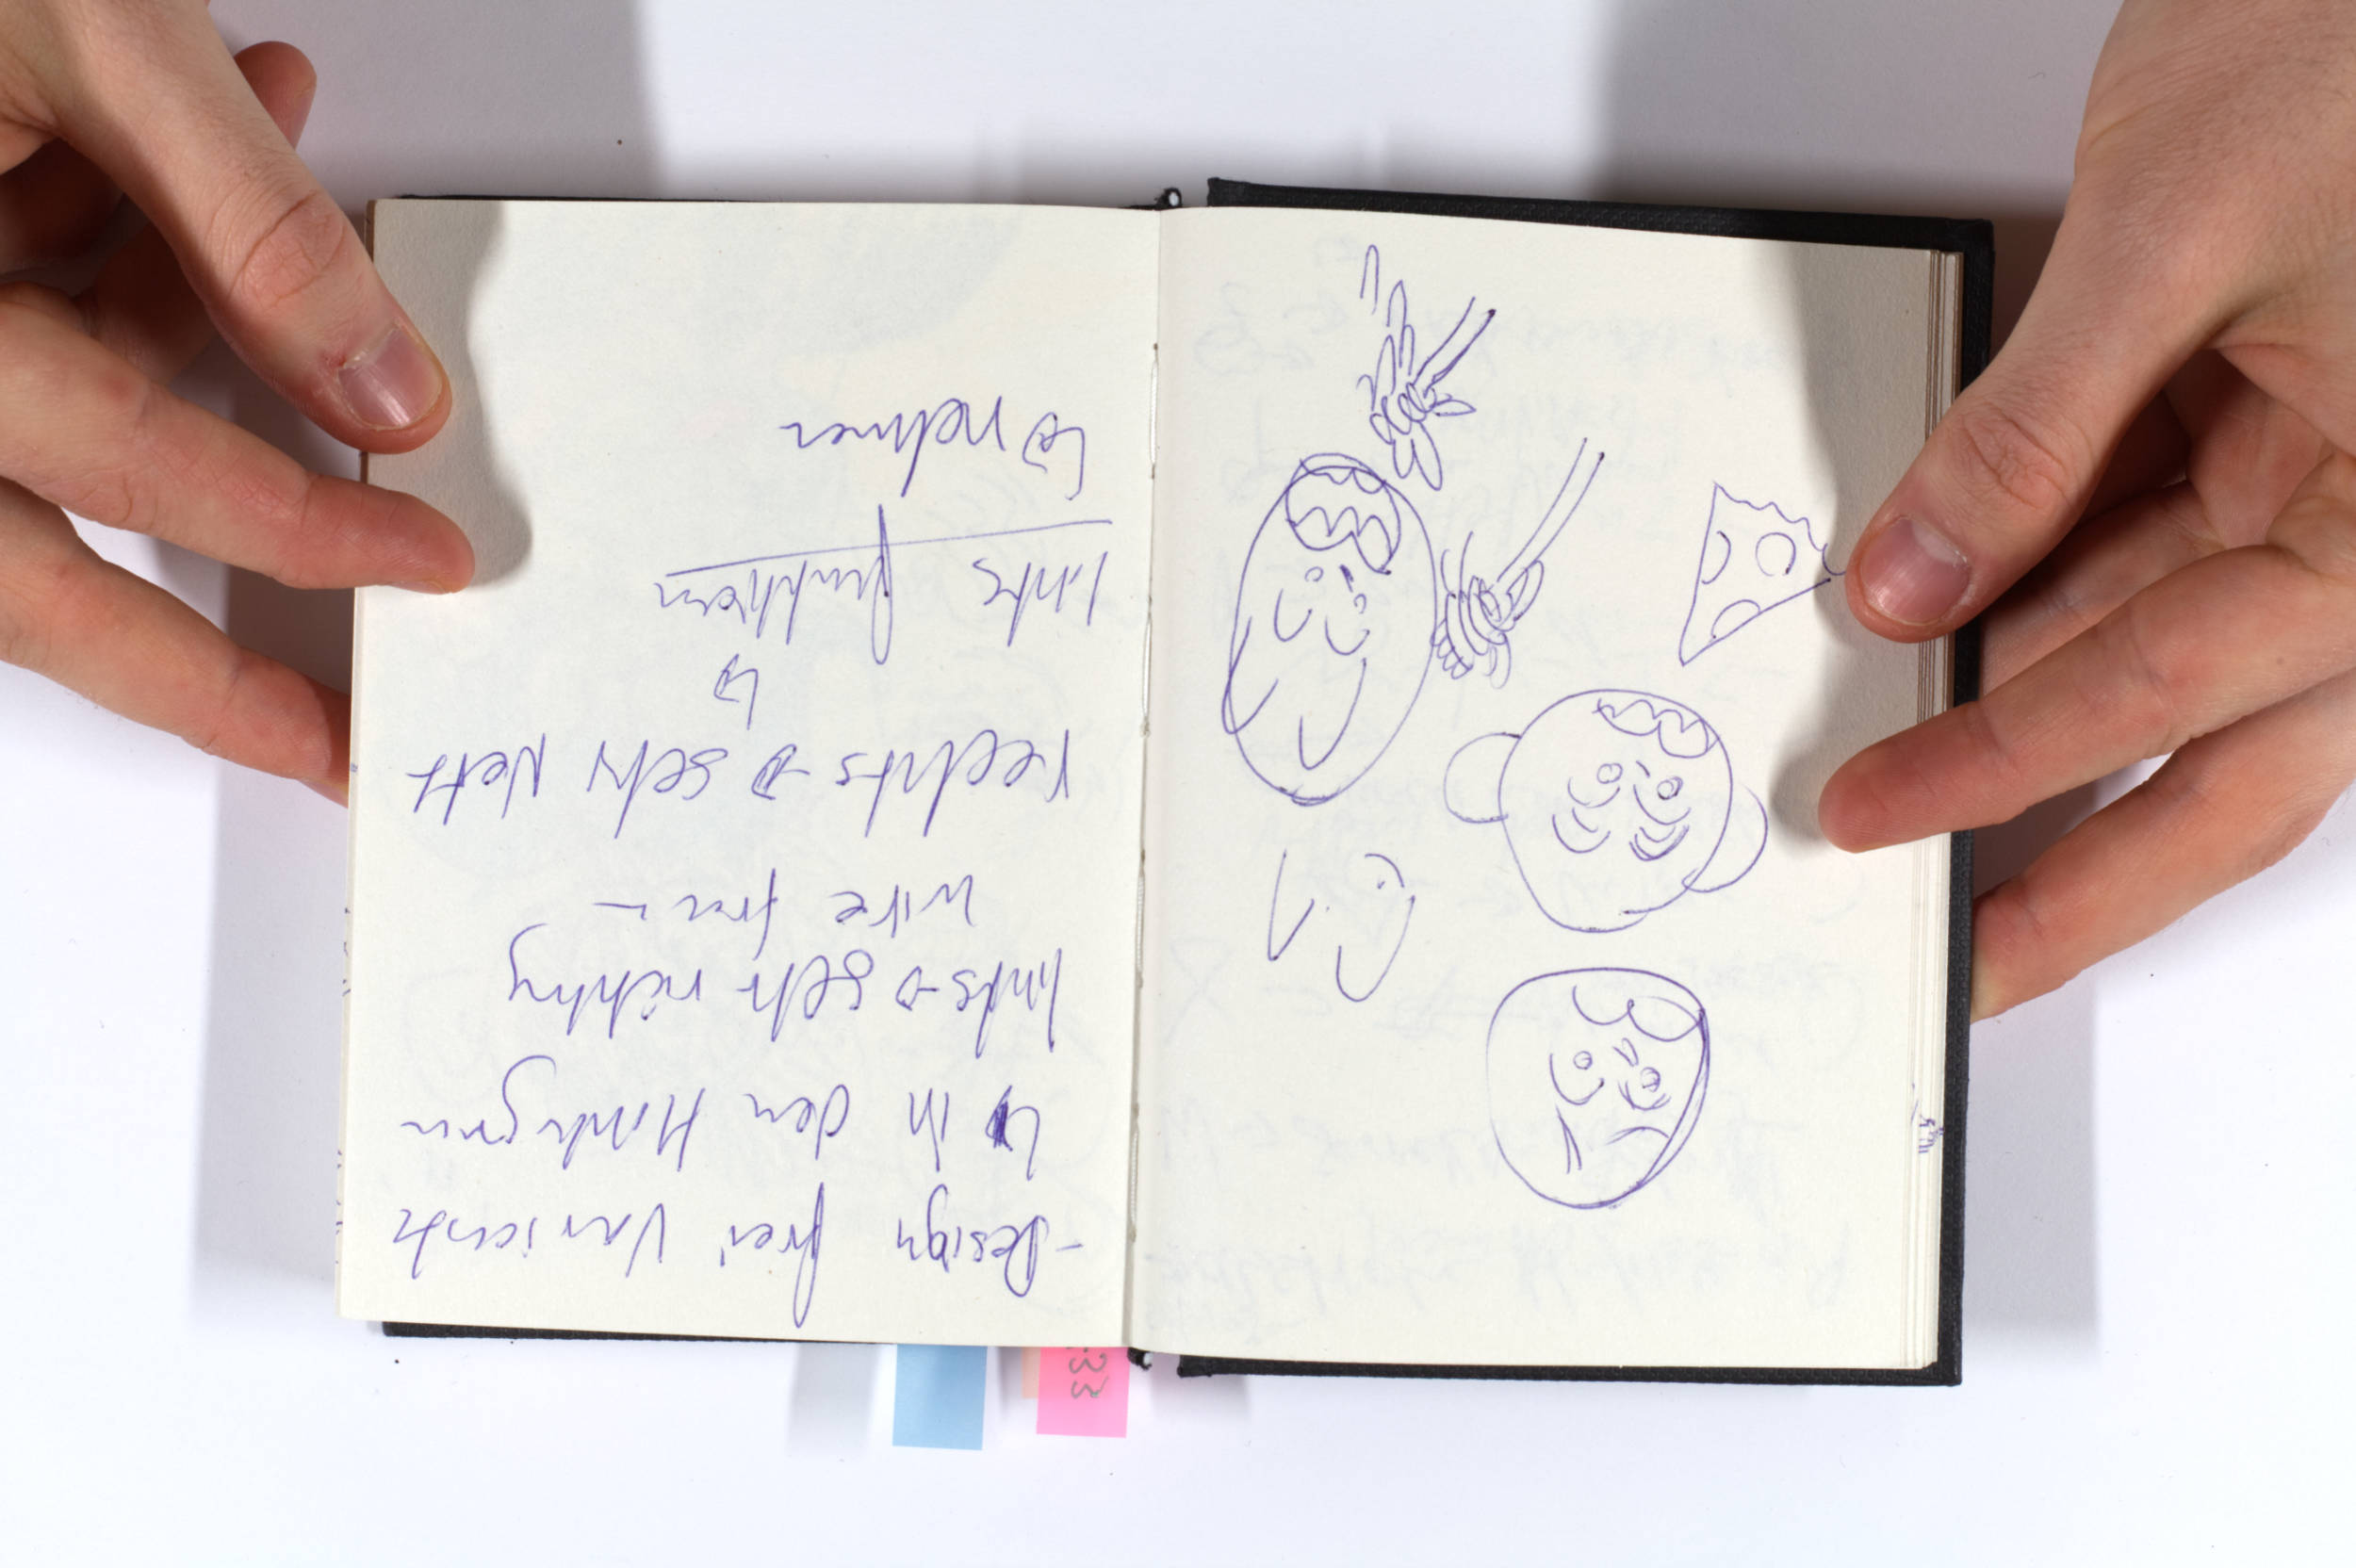 -Design frei Variante
↳ in den Hintergrun
links → sehr richtig
wire frei -
rechts → sehr Nett
↳
links funktion
↳ nehmen
:33